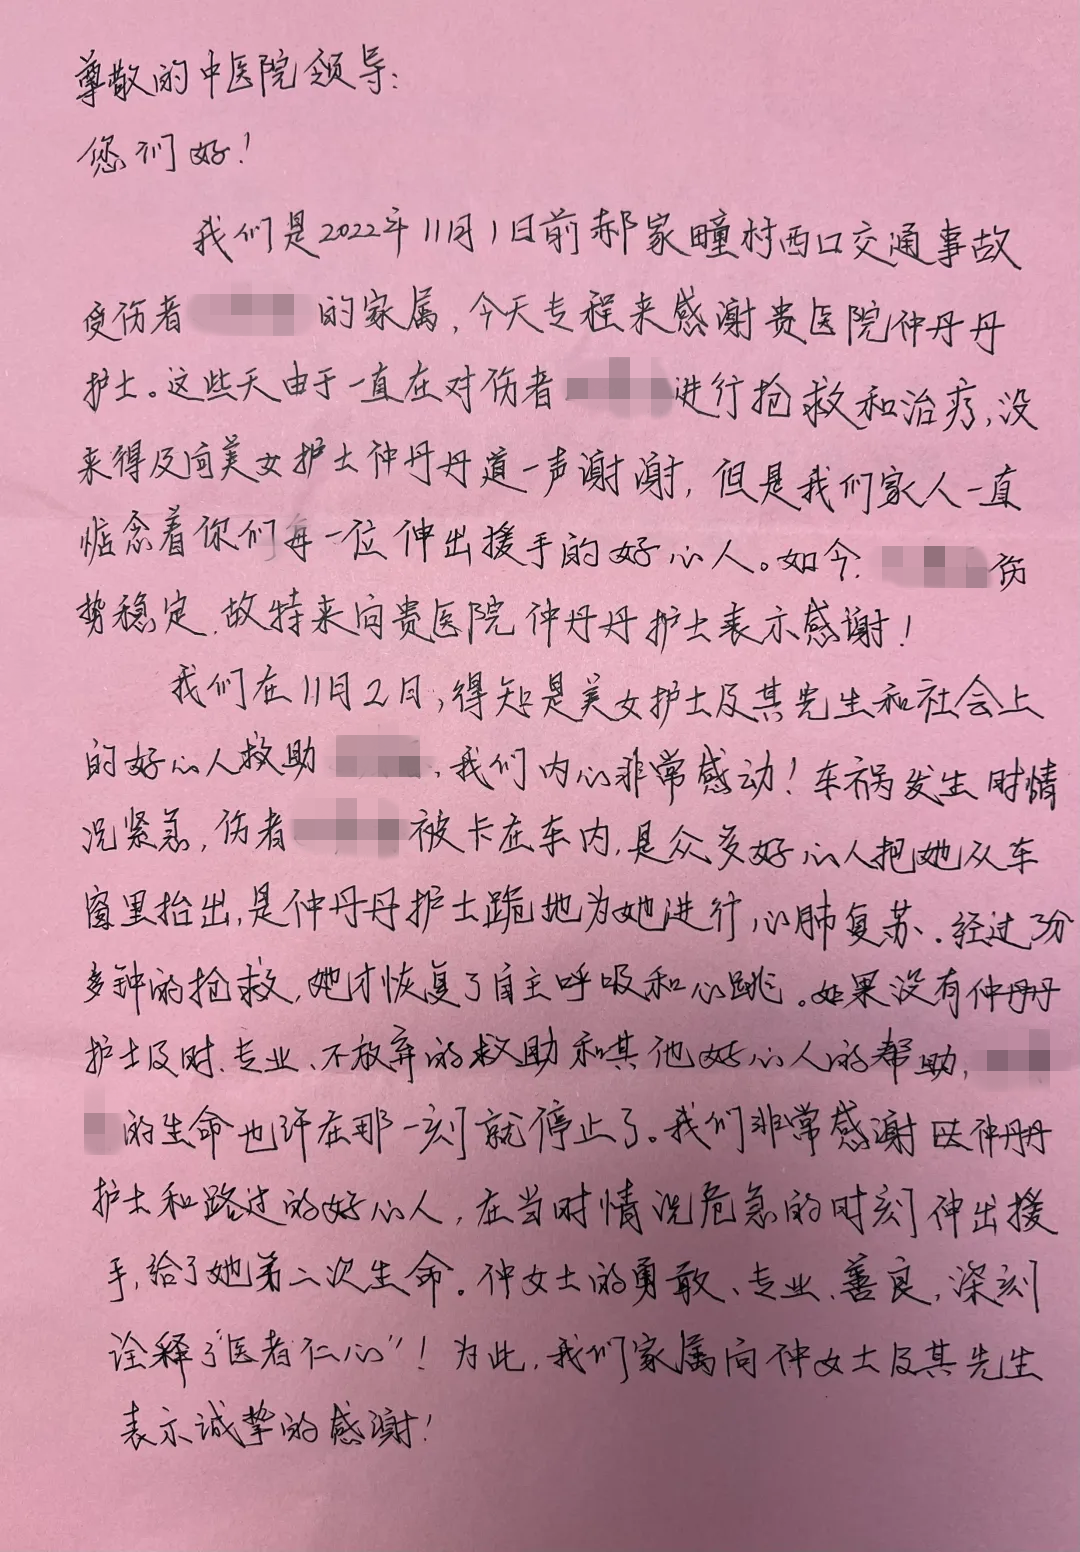 尊敬的中医院领导:
您们好!
我们是2022年11月1日前郝家疃村西口交通事故
受伤者 的家属,今天专程来感谢贵医院仲丹丹
护士。这些天由于一直在对伤者 进行抢救和治疗,没
来得及向美女护士仲丹丹道一声谢谢,但是我们家人一直
惦念着你们每一位伸出援手的好心人。如今, 伤
势稳定,故特来向贵医院仲丹丹护士表示感谢!
我们在11月2日,得知是美女护士及其先生和社会上
的好心人救助 ,我们内心非常感动!车祸发生时情
况紧急,伤者 被卡在车内,是众多好心人把她从车
窗里抬出,是仲丹丹护士跪地为她进行心肺复苏、经过3分
多钟的抢救,她才恢复了自主呼吸和心跳。如果没有仲丹丹
护士及时、专业、不放弃的救助和其他好心人的帮助,
的生命也许在那一刻就停止了。我们非常感谢 仲丹丹
护士和路过的好心人,在当时情况危急的时刻伸出援
手,给了她第二次生命。仲女士的勇敢、专业、善良,深刻
诠释了"医者仁心"!为此,我们家属向仲女士及其先生
表示诚挚的感谢!